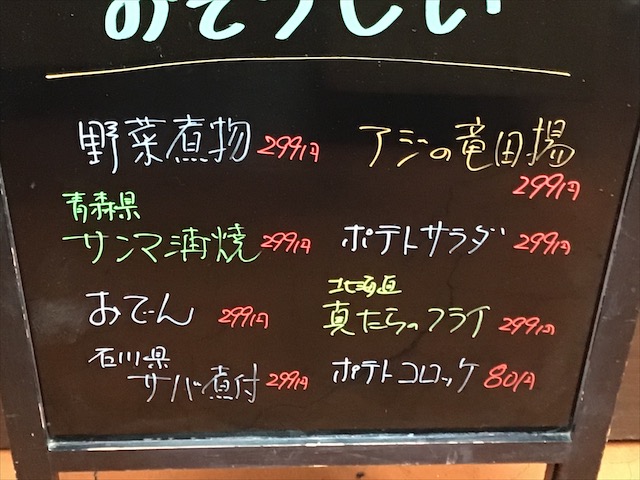 おそうしい
野菜煮物 299円
アジの竜田揚
299円
青森県
サンマ蒲焼 299円
ポテトサラダ 299円
おでん 299円
北海道
真たらのフライ 299円
石川県
サバ煮付 299円
ポテトコロッケ 80円